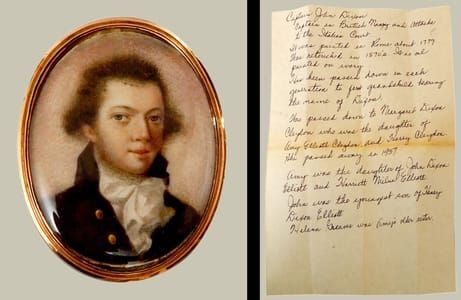 Captain John Dixon
Captain in British Navy and Attache
to the Italian Court
It was painted in Rome about 1779
Was retouched in 1870's. It is oil
painted on ivory
Has been passed down in each
generation to first grandchild bearing
the name of Dixon.
Was passed down to Margaret Dixon
Clegdon who was the daughter of
Amy Elliott Clegdon and Harry Clegdon
She passed away in 1957
Amy was the daughter of John Dixon
Elliott and Harriett Elliott
John was the youngest son of Henry
Dixon Elliott
Helena was Amy's older sister.